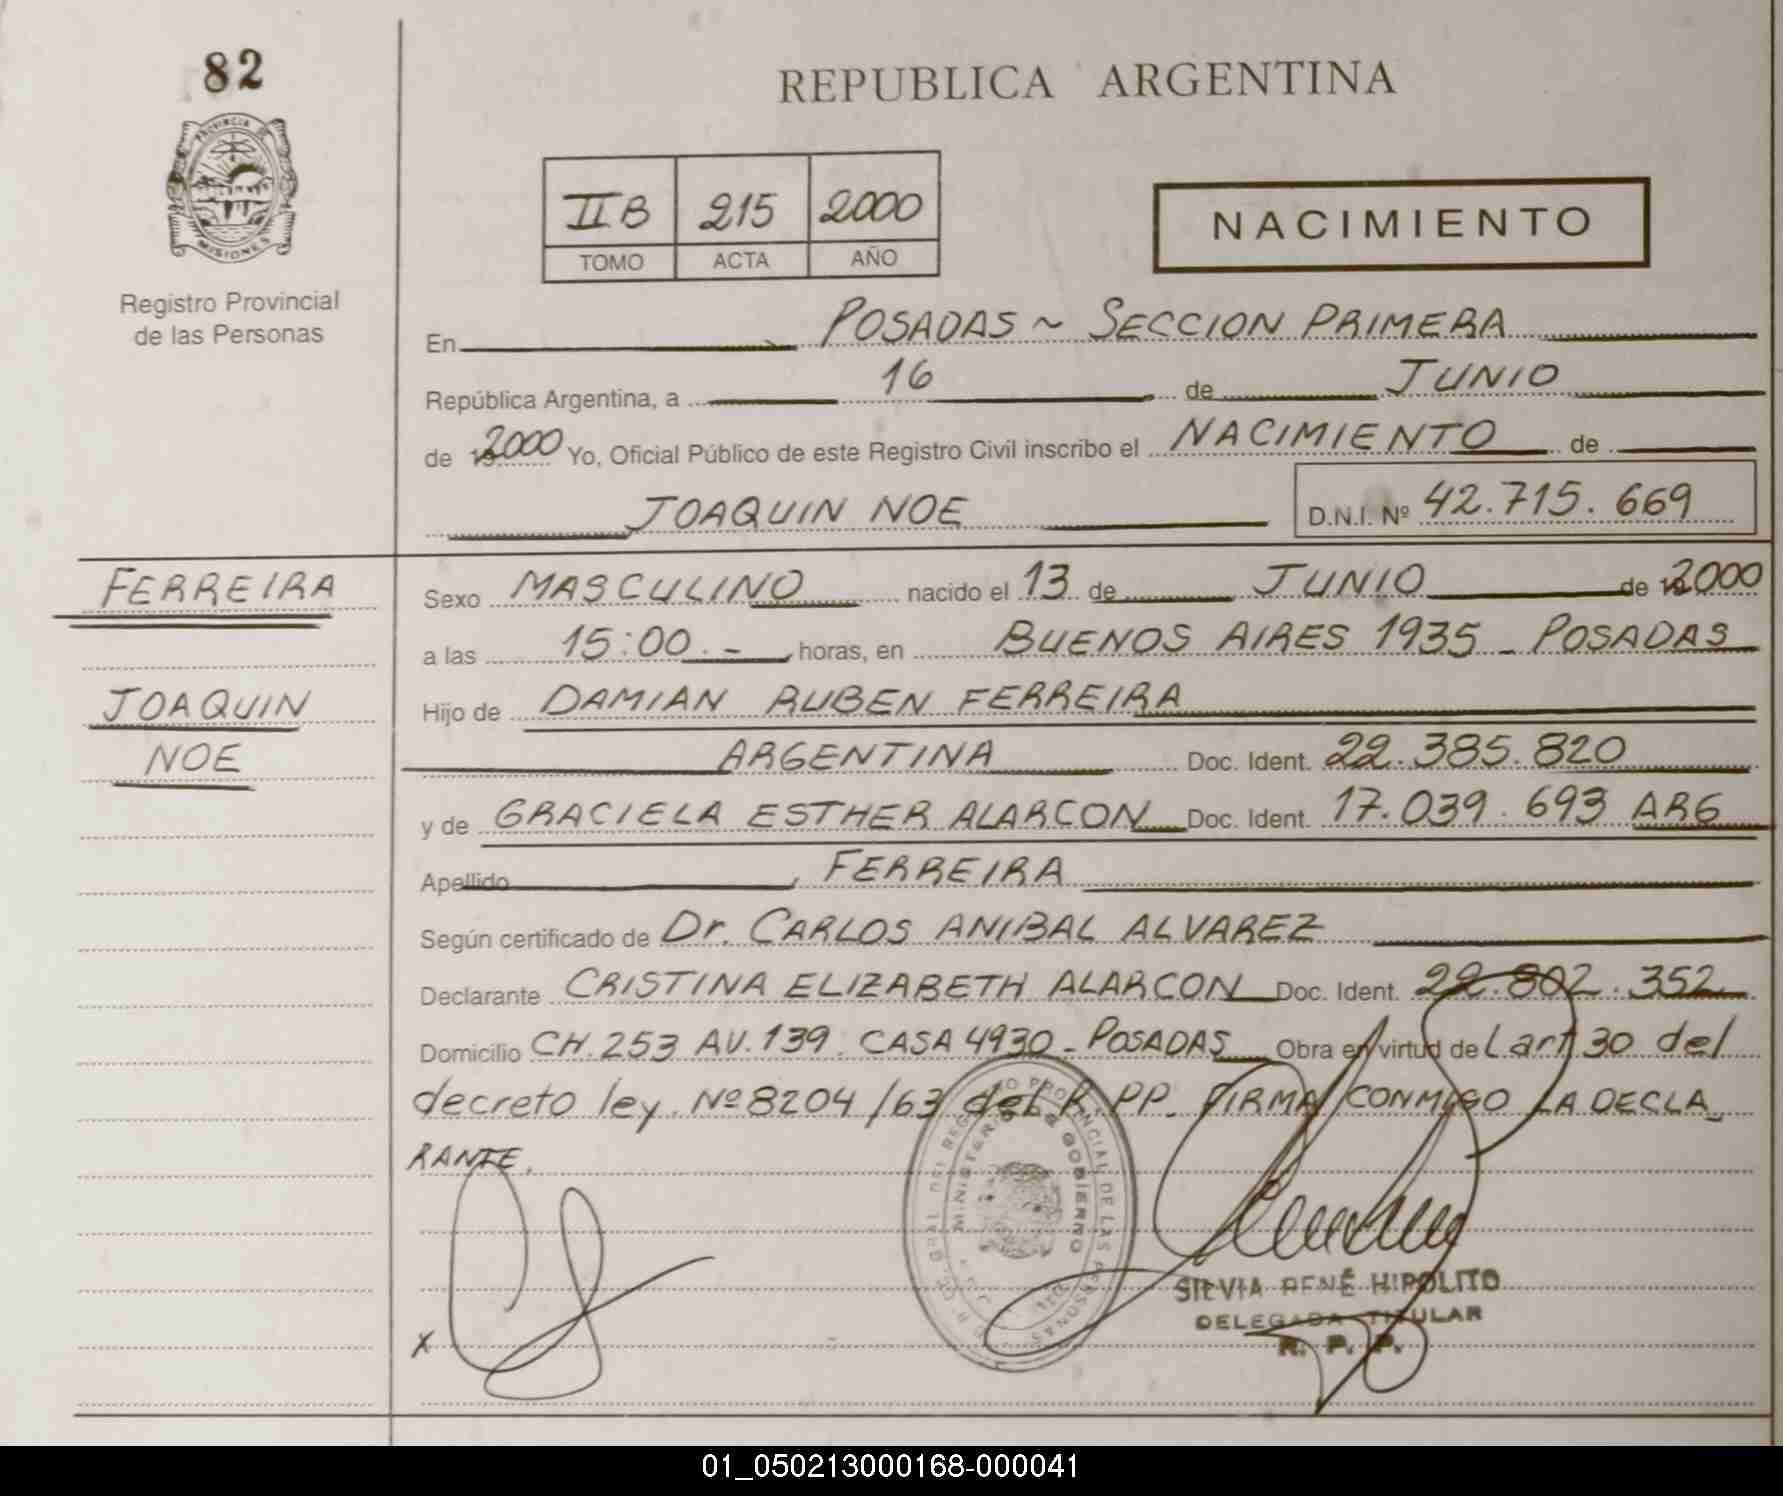 82
REPUBLICA ARGENTINA
PROVINCIA DE
MISIONES
Registro Provincial
de las Personas
IIB 215 2000
TOMO ACTA AÑO
NACIMIENTO
En POSADAS ~ SECCION PRIMERA
República Argentina, a 16 de JUNIO
de 2000 Yo, Oficial Público de este Registro Civil inscribo el NACIMIENTO de
JOAQUIN NOE D.N.I. Nº 42.715.669
FERREIRA
JOAQUIN
NOE
Sexo MASCULINO nacido el 13 de JUNIO de 2000
a las 15:00.- horas, en BUENOS AIRES 1935 - POSADAS
Hijo de DAMIAN RUBEN FERREIRA
ARGENTINA Doc. Ident. 22.385.820
y de GRACIELA ESTHER ALARCON Doc. Ident. 17.039.693 ARG
Apellido FERREIRA
Según certificado de Dr. CARLOS ANIBAL ALVAREZ
Declarante CRISTINA ELIZABETH ALARCON Doc. Ident. 22.802.352
Domicilio CH. 253 AV. 139. CASA 4930 - POSADAS Obra en virtud del art 30 del
decreto ley. Nº 8204/63 del R.PP. FIRMA CONMIGO LA DECLA_
RANTE.
MINISTERIO DE GOBIERNO
PROVINCIAL DE LAS PERSONAS
X
SILVIA RENÉ HIPOLITO
DELEGADA TITULAR
R. P. P.
01_050213000168-000041